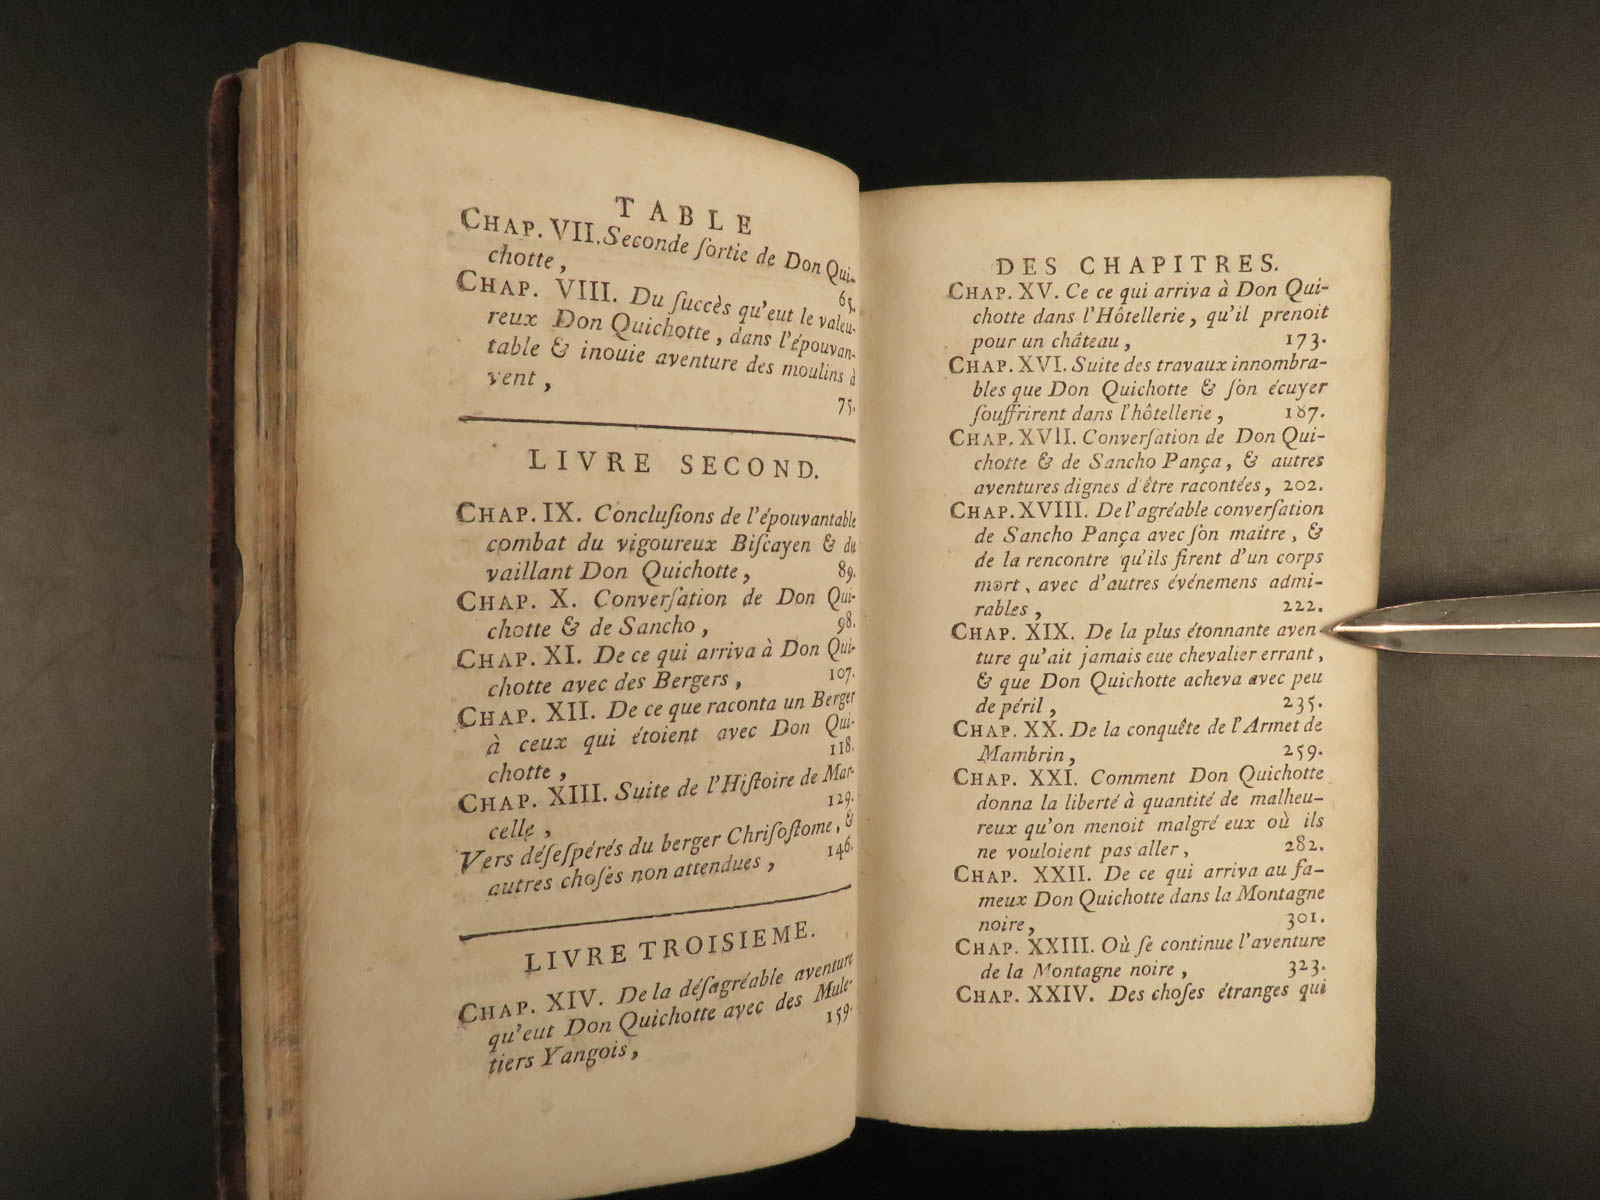 TABLE
CHAP. VII. Seconde ſortie de Don Qui-
chotte, 65.
CHAP. VIII. Du ſuccès qu'eut le valeu-
reux Don Quichotte, dans l'épouvan-
table & inouie aventure des moulins à
vent, 75.
LIVRE SECOND.
CHAP. IX. Concluſions de l'épouvantable
combat du vigoureux Biſcayen & du
vaillant Don Quichotte, 89.
CHAP. X. Converſation de Don Qui-
chotte & de Sancho, 98.
CHAP. XI. De ce qui arriva à Don Qui-
chotte avec des Bergers, 107.
CHAP. XII. De ce que raconta un Berger
à ceux qui étoient avec Don Qui-
chotte, 118.
CHAP. XIII. Suite de l'Hiſtoire de Mar-
celle, 129.
Vers déſeſpérés du berger Chriſoſtome, &
autres choſes non attendues, 146.
LIVRE TROISIEME.
CHAP. XIV. De la déſagréable aventure
qu'eut Don Quichotte avec des Mule-
tiers Yangois, 159.
DES CHAPITRES.
CHAP. XV. Ce ce qui arriva à Don Qui-
chotte dans l'Hôtellerie, qu'il prenoit
pour un château, 173.
CHAP. XVI. Suite des travaux innombra-
bles que Don Quichotte & ſon écuyer
ſouffrirent dans l'hôtellerie, 187.
CHAP. XVII. Converſation de Don Qui-
chotte & de Sancho Pança, & autres
aventures dignes d'être racontées, 202.
CHAP. XVIII. De l'agréable converſation
de Sancho Pança avec ſon maître, &
de la rencontre qu'ils firent d'un corps
mort, avec d'autres événemens admi-
rables, 222.
CHAP. XIX. De la plus étonnante aven-
ture qu'ait jamais eue chevalier errant,
& que Don Quichotte acheva avec peu
de péril, 235.
CHAP. XX. De la conquête de l'Armet de
Mambrin, 259.
CHAP. XXI. Comment Don Quichotte
donna la liberté à quantité de malheu-
reux qu'on menoit malgré eux où ils
ne vouloient pas aller, 282.
CHAP. XXII. De ce qui arriva au fa-
meux Don Quichotte dans la Montagne
noire, 301.
CHAP. XXIII. Où ſe continue l'aventure
de la Montagne noire, 323.
CHAP. XXIV. Des choſes étranges qui